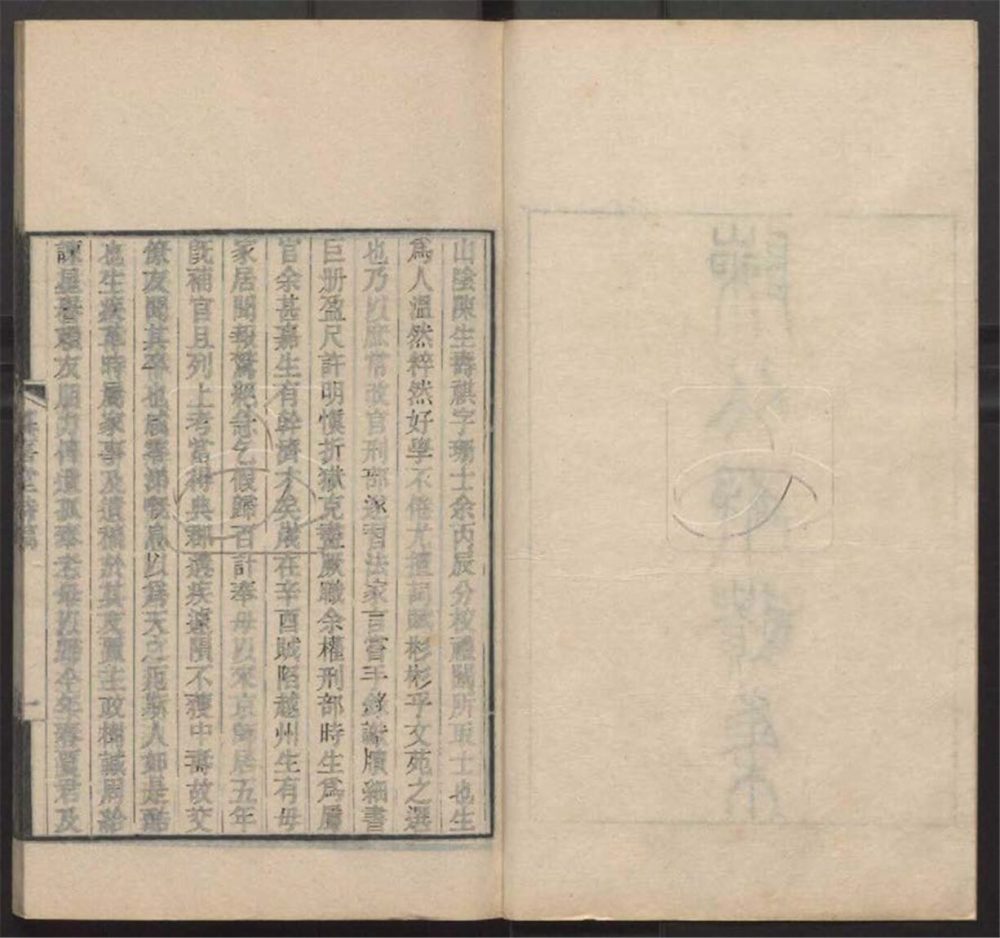 山陰陳生壽祺字珊士余丙辰分校禮闈所取士也生
爲人溫然粹然好學不倦尤擅詞賦彬彬乎文苑之選
也乃以庶常改官刑部遂習法家言嘗手錄讞牘細書
巨册盈尺許明愼折獄克盡厥職余權刑部時生爲屬
官余甚嘉生有幹濟才矣歲在辛酉賊陷越州生有母
家居聞報驚絕亟乞假歸百計奉母以來京僦居五年
旣補官且列上考當得典郡遘疾遽隕不獲中壽故交
僚友聞其卒也咸霣涕慨息以爲天之阨斯人如是酷
也生疾革時屬家事及遺稿於其友 生政 誠周給
諫星譽 友朋力 遺孤奉老母以歸今年春 君及